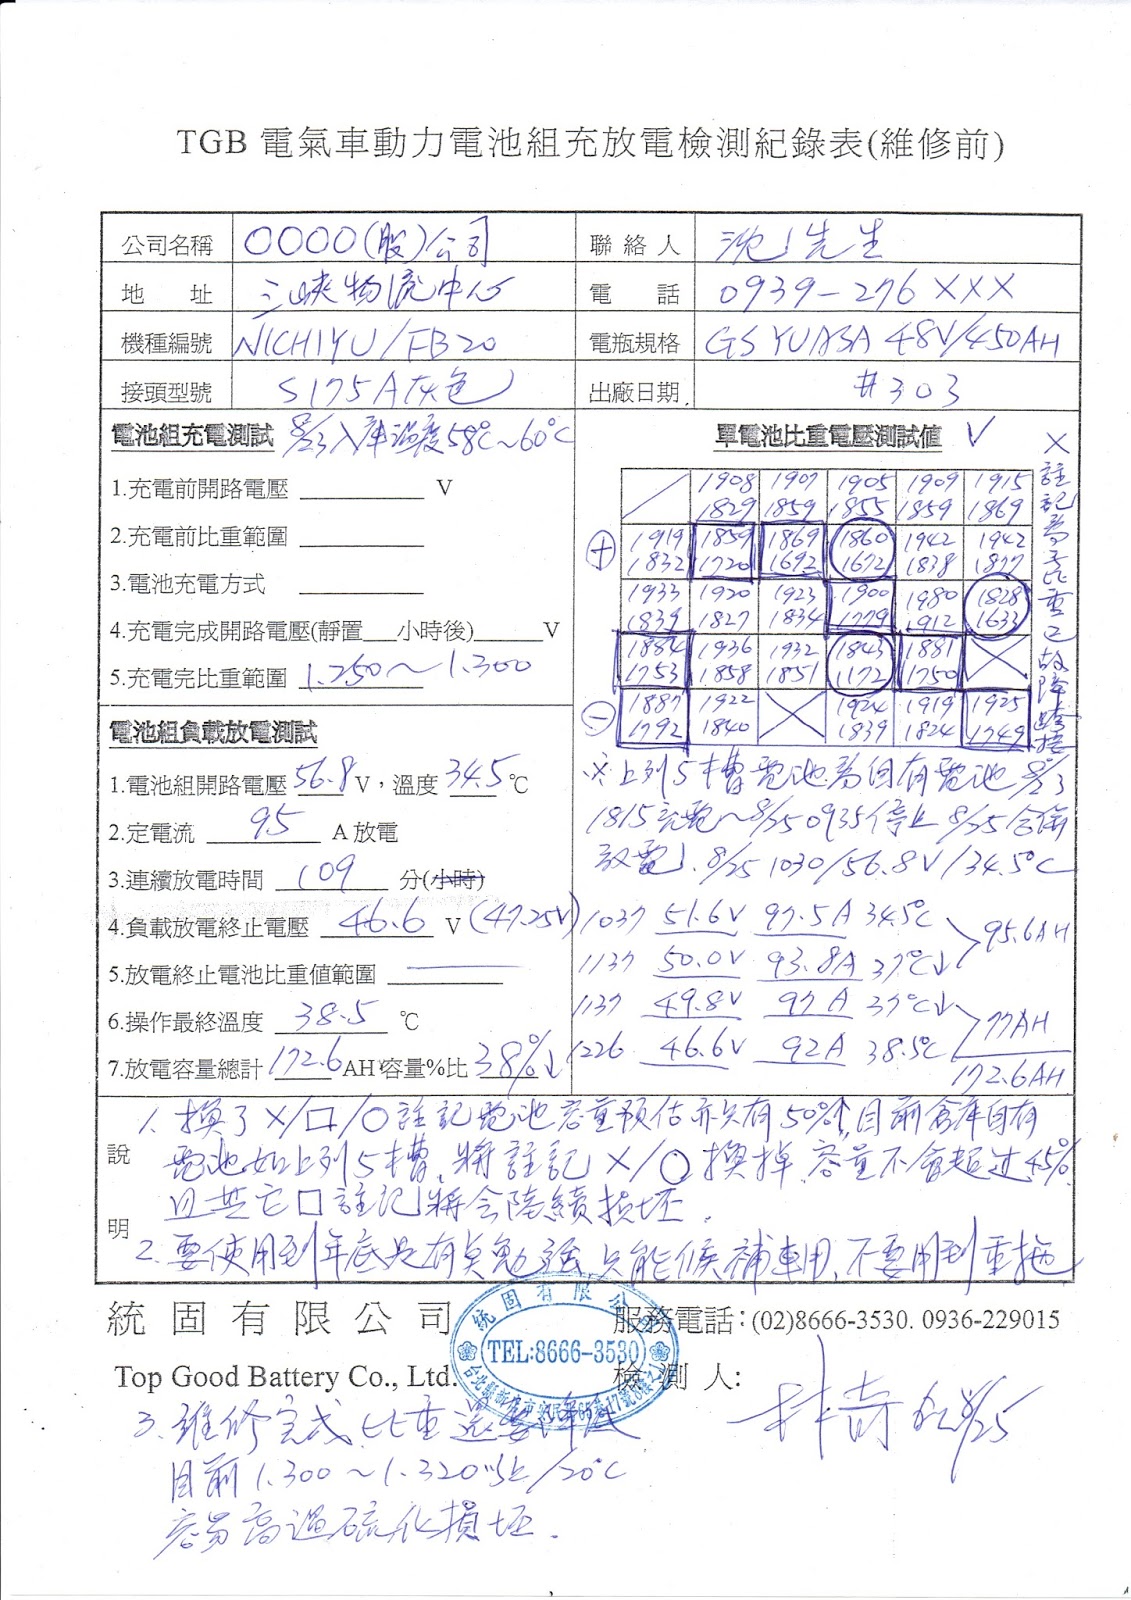 TGB 電氣車動力電池組充放電檢測紀錄表(維修前)
公司名稱 OOOO(股)公司 聯絡人 沈先生
地 址 三峽物流中心 電 話 0939-276XXX
機種編號 NICHIYU/FB20 電瓶規格 GS YUASA 48V/450AH
接頭型號 S175A灰色 出廠日期 #303
電池組充電測試 8/3入庫溫度58℃~60℃
1.充電前開路電壓 V
2.充電前比重範圍
3.電池充電方式
4.充電完成開路電壓(靜置 小時後) V
5.充電完比重範圍 1.250~1.300
電池組負載放電測試
1.電池組開路電壓 56.8 V,溫度 34.5 ℃
2.定電流 95 A 放電
3.連續放電時間 109 分(小時)
4.負載放電終止電壓 46.6 V (47.25V)
5.放電終止電池比重值範圍
6.操作最終溫度 38.5 ℃
7.放電容量總計 172.6 AH 容量%比 38%↓
單電池比重電壓測試值 V
1908 1907 1905 1909 1915
1829 1859 1855 1859 1869
+ 1919 1859 1869 1860 1942 1942
1832 1720 1692 1672 1838 1877
1933 1920 1923 1900 1980 1828
1839 1827 1834 1779 1912 1633
1884 1936 1932 1843 1881
1753 1858 1851 1172 1750
- 1887 1922 1924 1919 1925
1792 1840 1839 1824 1749
X註記為無比重已故障跨接
※上列5槽電池為自有電池 8/3
1815充電~8/25 0935停止 8/25合併
放電. 8/25 1030/56.8V/34.5℃
1037 51.6V 97.5A 34.5℃
1137 50.0V 93.8A 37℃↓ 95.6AH
1137 49.8V 97A 37℃↓
1226 46.6V 92A 38.5℃ 77AH
172.6AH
說明
1. 換了X/口/○註記電池容量預估亦只有50%↑,目前倉庫自有
電池如上列5槽,將註記X/○換掉,容量不會超過45%
且其它口註記將會陸續損坏.
2. 要使用到年底是有臭勉強,只能候補車用,不要用到重拖
統固有限公司 服務電話:(02)8666-3530. 0936-229015
統固有限公司
TEL:8666-3530
Top Good Battery Co., Ltd. 檢測人:
3. 維修完成比重還要降低
目前1.300~1.320以上/20℃
容易高過硫化損坯.